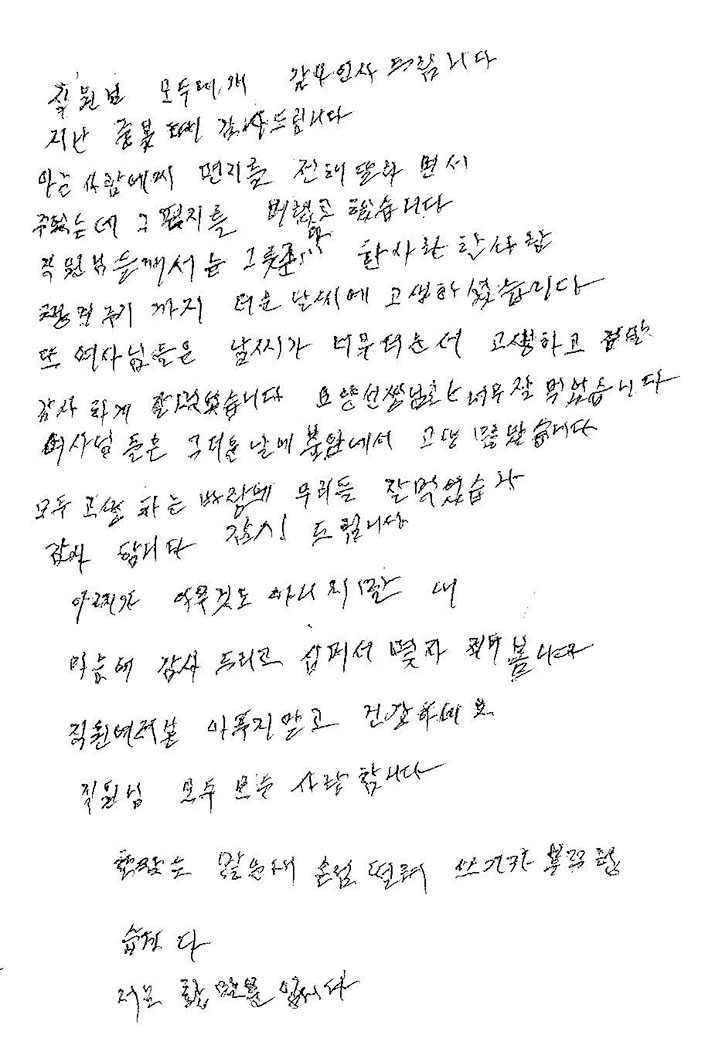 직원님 모두에게 감사인사 드림니다
지난 중복 때 감사드림니다
아는 사람에게 편지를 전해 달라 면서
주었는데 그 편지를 했습니다
직원님들께서는 한사람 한사람
까지 더운 날씨에 고생하셨습니다
또 여사님들은 날씨가 너무 더운서 고생하고 정말
감사 하게 잘먹었습니다 요양선생님들 너무 잘 먹었습니다
여사님들은 그더운 날에 불앞에서 고생 많았습니다
모두 고생 하는 바람에 우리들 잘먹었습
감사 합니다 감사 드림니다
아무것도 아니지만 내
마음에 감사 드리고 십퍼서 몇자 적어 봄니다
직원여러분 아푸지말고 건강하세요
직원님 모두 모두 사랑 함니다
손염 떨려 쓰기가
습니다
저는 입니다